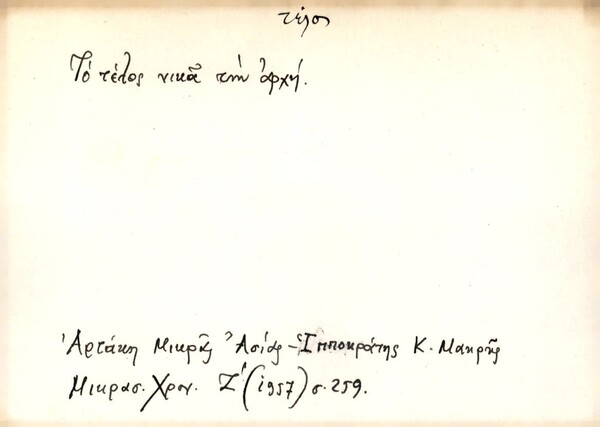 τέλος
Τό τέλος νικᾶ τήν ἀρχή.
Ἀρτάκη Μικρᾶς Ἀσίας - Ἱπποκράτης Κ. Μακρῆς
Μικρασ. Χρον. Ζ' (1957) σ. 259.